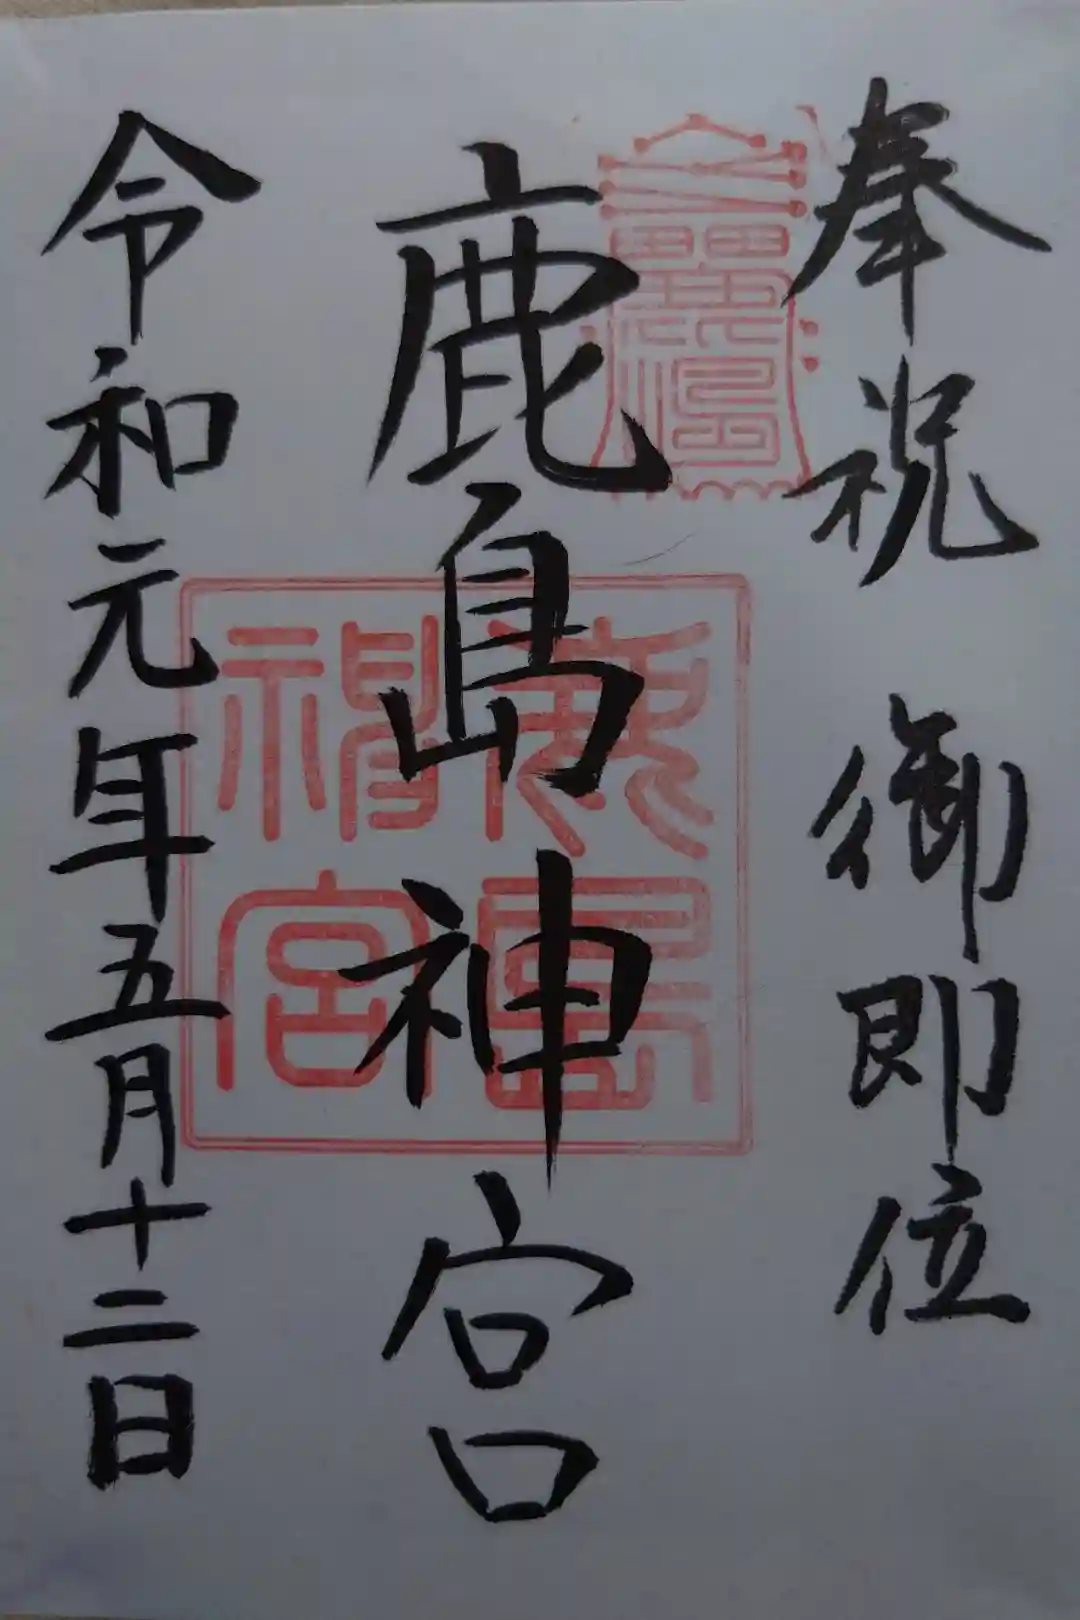 奉祝 御即位
鹿島神宮
令和元年五月十二日
鹿島
神宮